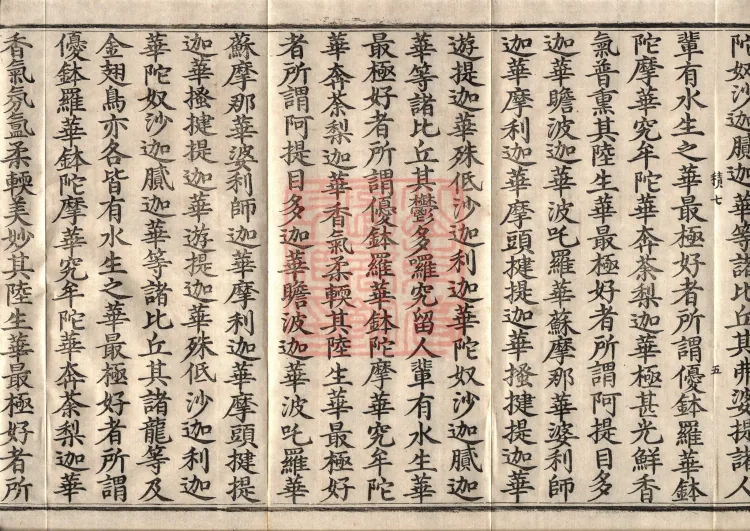 陀奴沙迦膩迦華等諸比丘其弗婆提諸人
積七
五
輩有水生之華最極好者所謂優鉢羅華鉢
陀摩華究牟陀華奔荼梨迦華極甚光鮮香
氣普熏其陸生華最極好者所謂阿提目多
迦華瞻波迦華波吒羅華蘇摩那華婆利師
迦華摩利迦華摩頭揵提迦華搔揵提迦華
遊提迦華殊低沙迦利迦華陀奴沙迦膩迦
華等諸比丘其鬱多囉究留人輩有水生華
最極好者所謂優鉢羅華鉢陀摩華究牟陀
華奔荼梨迦華香氣柔輭其陸生華最極好
者所謂阿提目多迦華瞻波迦華波吒羅華
蘇摩那華婆利師迦華摩利迦華摩頭揵提
迦華搔揵提迦華遊提迦華殊低沙迦利迦
華陀奴沙迦膩迦華等諸比丘其諸龍等及
金翅鳥亦各皆有水生之華最極好者所謂
優鉢羅華鉢陀摩華究牟陀華奔荼梨迦華
香氣氛氳柔輭美妙其陸生華最極好者所